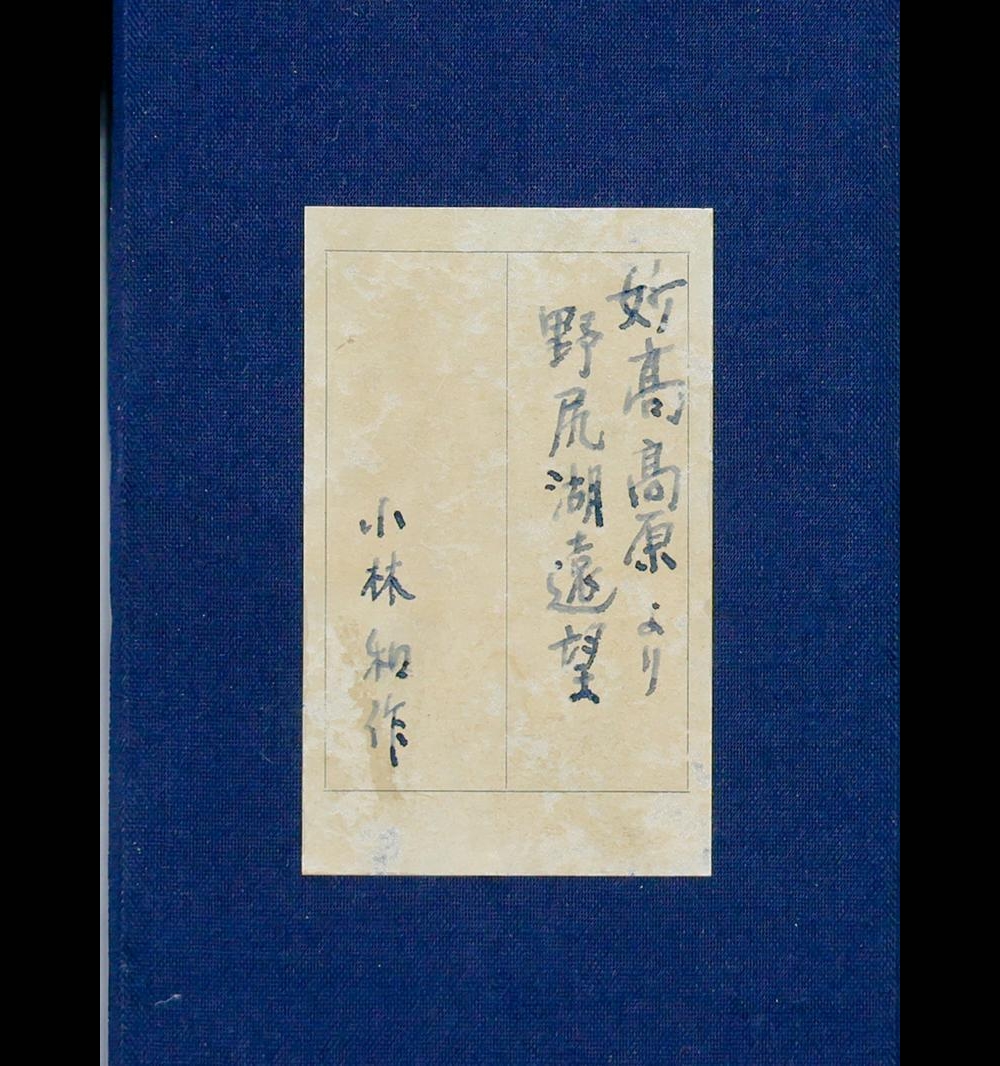 妙高高原より
野尻湖遠望
小林和作